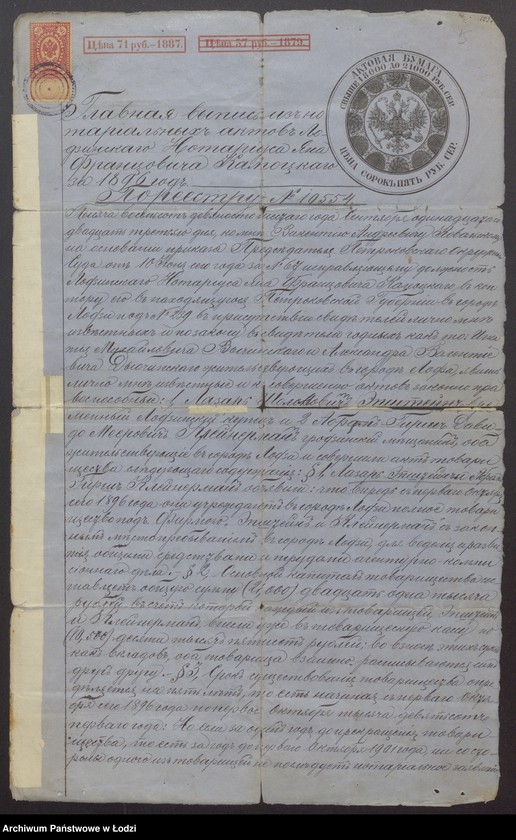 Цѣна 71 руб.-1887.
Цѣна 57 руб.-1879.
АКТОВАЯ БУМАГА
СВЫШЕ 18000 ДО 21000 РУБ. СЕР.
ЦѢНА СОРОКЪ ПЯТЬ РУБ. СЕР.
Главная выпись изъ но
таріальныхъ актовъ Ло
дзинскаго Нотаріуса Яна
Францовича Камоцкаго
за 1896 годъ.
По реестру № 10554
Тысяча восемьсотъ девяносто шестаго года Сентября одиннадцатаго
двадцать третьяго дня, ко мнѣ
на основаніи приказа Предсѣдателя Петроковскаго Окружн
Суда отъ 10 сего года за № исправляющему должность
Лодзинскаго Нотаріуса Яна Францовича Камоцкаго, въ кон
тору его въ находящуюся Петроковской Губерніи въ городѣ
Лодзи подъ № 29 въ присутствіи свидѣтелей лично мнѣ
извѣстныхъ и по закону въ свидѣтели годныхъ какъ то: Игна
тія Михайловича и Александра Валенти
вича жительствующихъ въ городѣ Лодзи, явились
лично мнѣ извѣстные и къ совершенію актовъ законно пра
воспособные: 1, Лазарь Эпштейнъ вре
менный Лодзинскій купецъ и 2, Гиршъ Дави
дъ Мееровичъ Клейнерманъ гродзенскій мѣщанинъ, оба
жительствующіе въ городѣ Лодзи и совершили актъ товари
щества слѣдующаго содержанія: § 1, Лазарь Эпштейнъ и
Гиршъ Клейнерманъ объявили: что впредь съ перваго Октября
сего 1896 года они учреждаютъ въ городѣ Лодзи полное товари
щество подъ фирмою: Эпштейнъ и Клейнерманъ съ закон
нымъ мѣстопребываніемъ въ городѣ Лодзи, для веденія
общими средствами и трудами агентурно-комми
сіоннаго дѣла. § 2, Основной капиталъ товарищества со
ставляетъ общую сумму (21,000) двадцать одна тысяча
рублей въ счетъ которой каждый изъ товарищей, Эпштейнъ
и Клейнерманъ внесъ уже въ товарищескую кассу по
(10,500) десяти тысячъ пятисотъ рублей; во взносѣ таковыхъ
вкладовъ, оба товарища взаимно, расписываются одинъ
другу. § 3, Срокъ существованія товарищества опре
дѣляется на пять лѣтъ, то есть начиная съ перваго Октя
бря сего 1896 года по первое Октября тысяча девятьсотъ
перваго года. Но если за годъ до прекращенія товари
щества, то есть за годъ до перваго Октября 1901 года, ни со сто
роны одного изъ товарищей не послѣдуетъ нотаріальное
Archiwum Państwowe w Łodzi